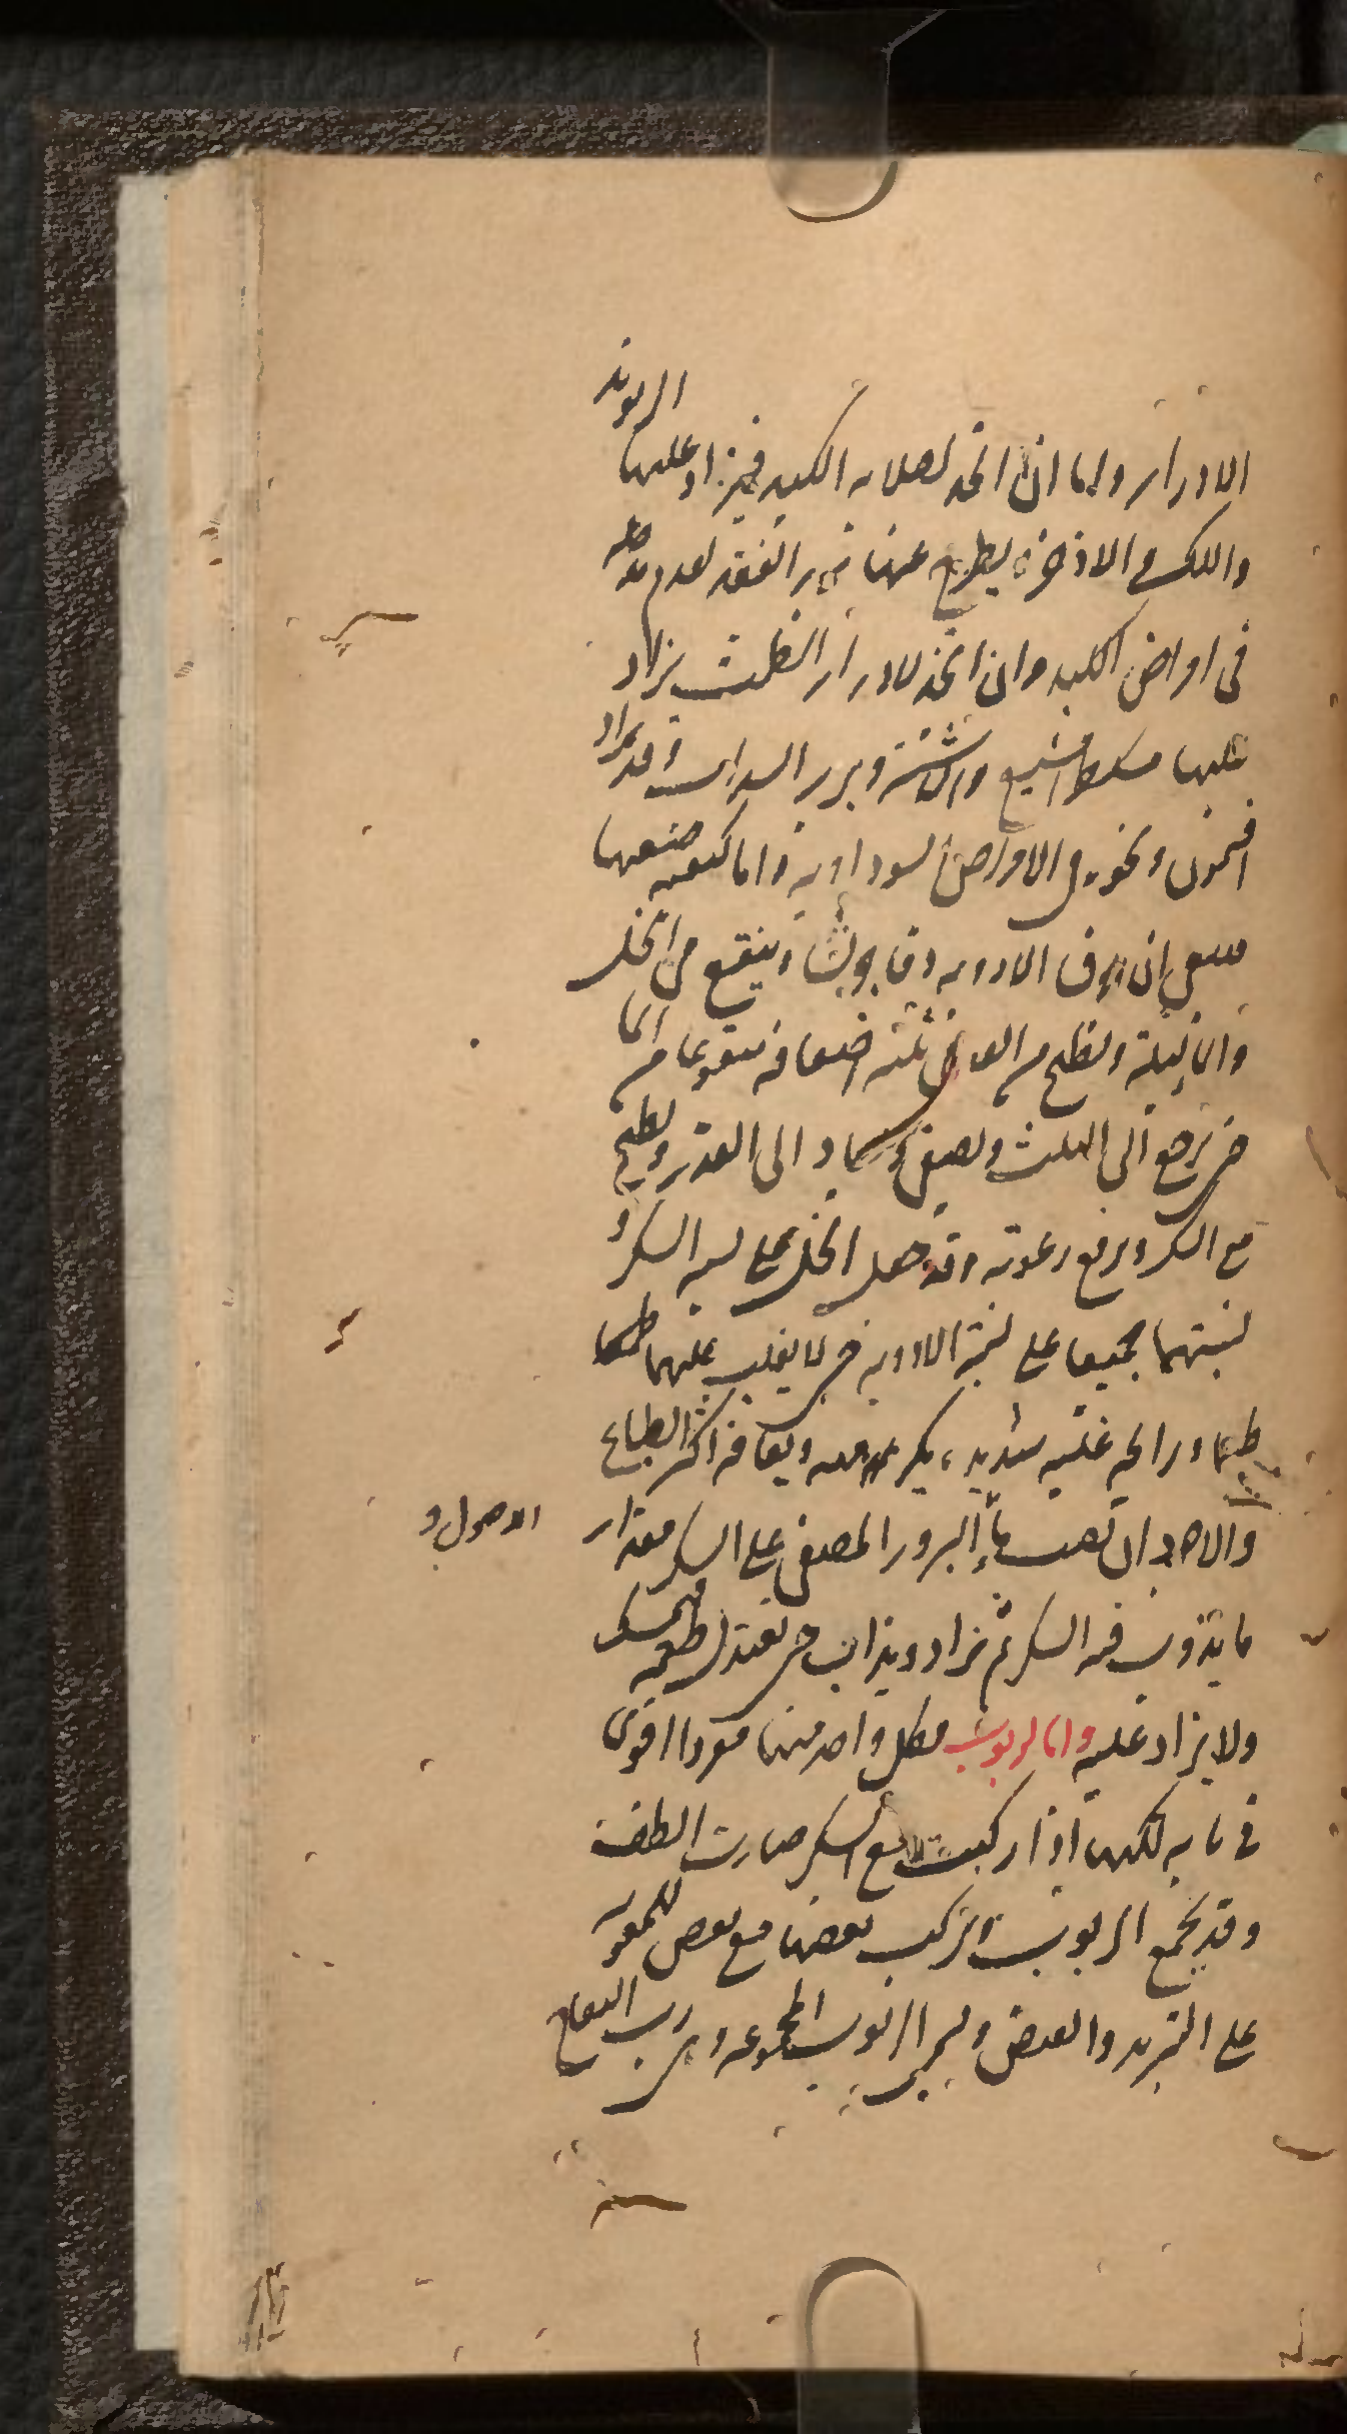 الادرار واما ان اتخذ لصلابة الكبد فيزاد عليها الريوند
واللك والاذخر ويطرح عنها بزر الفقد لعدم
فى امراض الكبد وان اتخذ لادرار الطمث يزاد
عليها مشكطرامشيع وبزر السداب وقد يزاد
افتيمون ونحوه فى الامراض السوداوية واما كيفية صنعتها
فينبغى ان يدق الادوية دقا وينقع من الخل
والماء ليلة ويطبخ من الغد فى ثلثة اضعافه من الماء
حتى يرجع الى الثلث ويصفى ويعاد الى القدر ويطبخ
مع السكر ويرفع رغوته وقد جعل الخل على نسبة السكر و
نسبتهما جميعا على نسبة الادوية حتى لا يغلب عليهما
طعما ورائحة غلبة شديدة يكره ويعافه اكثر الطباع
والاجود ان يصب ماء البزور المصفى على السكر مقدار
الاصول و
ما يذوب فيه السكر ثم يزاد ويذاب حتى يعتدل طعمه
ولا يزاد عليه واما الربوب فكل واحد منها مفردا اقوى
فى بابه لكنها اذا ركبت مع السكر صارت الطف
وقد يجمع الربوب وتركب بعضها مع بعض للمعونة
على التبريد والقبض وليس الربوب المجموعة رب التفاح